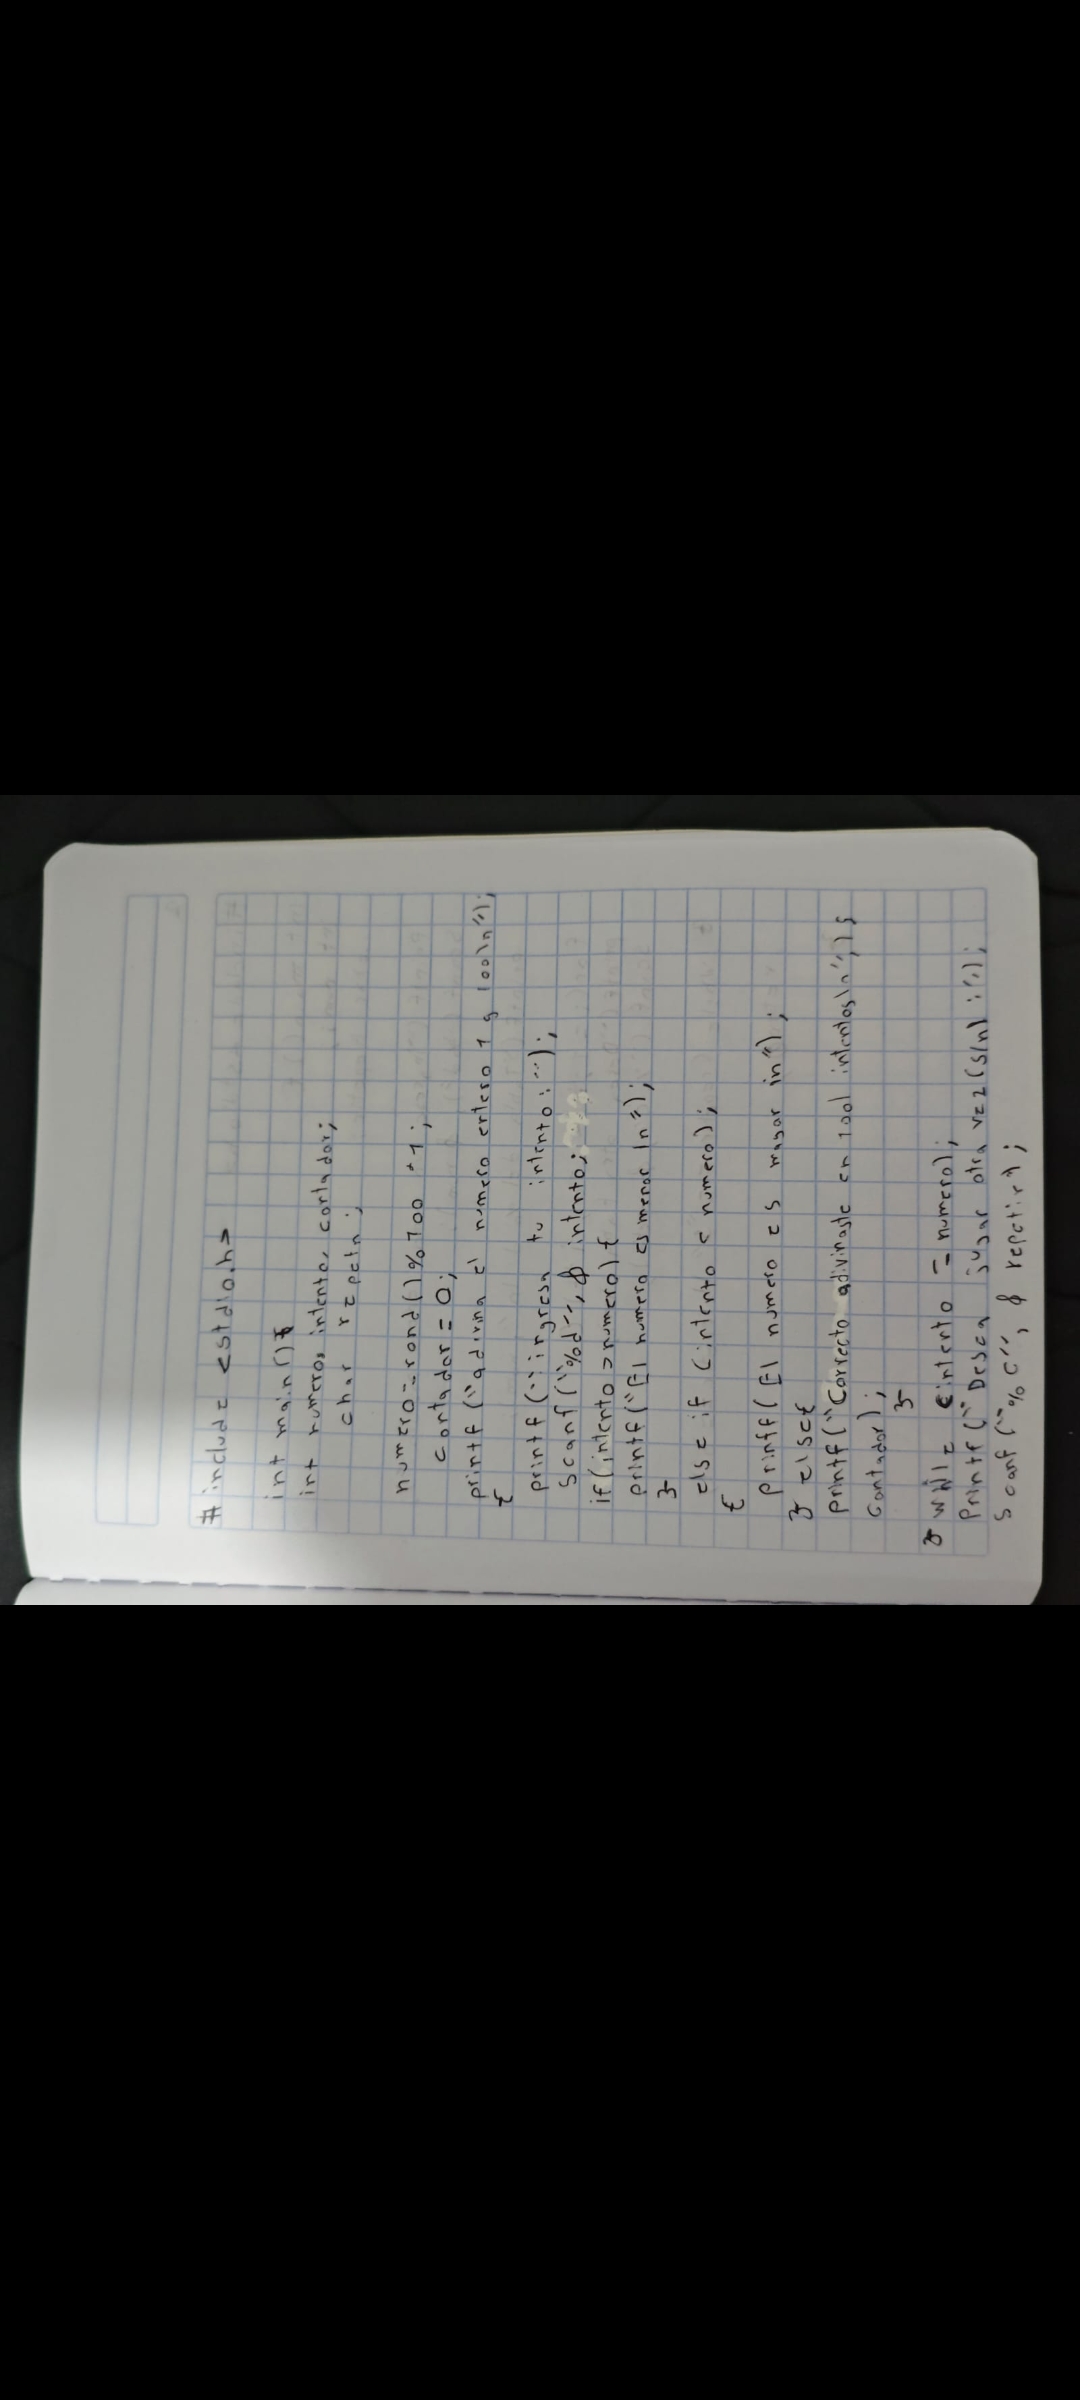 # include <stdio.h>
int main() {
int numeros intento, contador;
char repetn;
numero=rond()%100 +1;
contador=0;
printf ("adivina el numero entero 1 y 100\n");
{
printf ("ingresa tu intento: ");
scanf ("%d", & intento;
if (intento > numero) {
printf ("El numero es menor \n");
}
else if (intento < numero);
{
printf ( El numero es mayor \n");
} else {
printf ("Correcto adivinaste en 100| intentos\n",);
contador);
}
} while intento = numero);
printf ("Desea jugar otra vez (s/n) :");
scanf ("%c", & repetir);